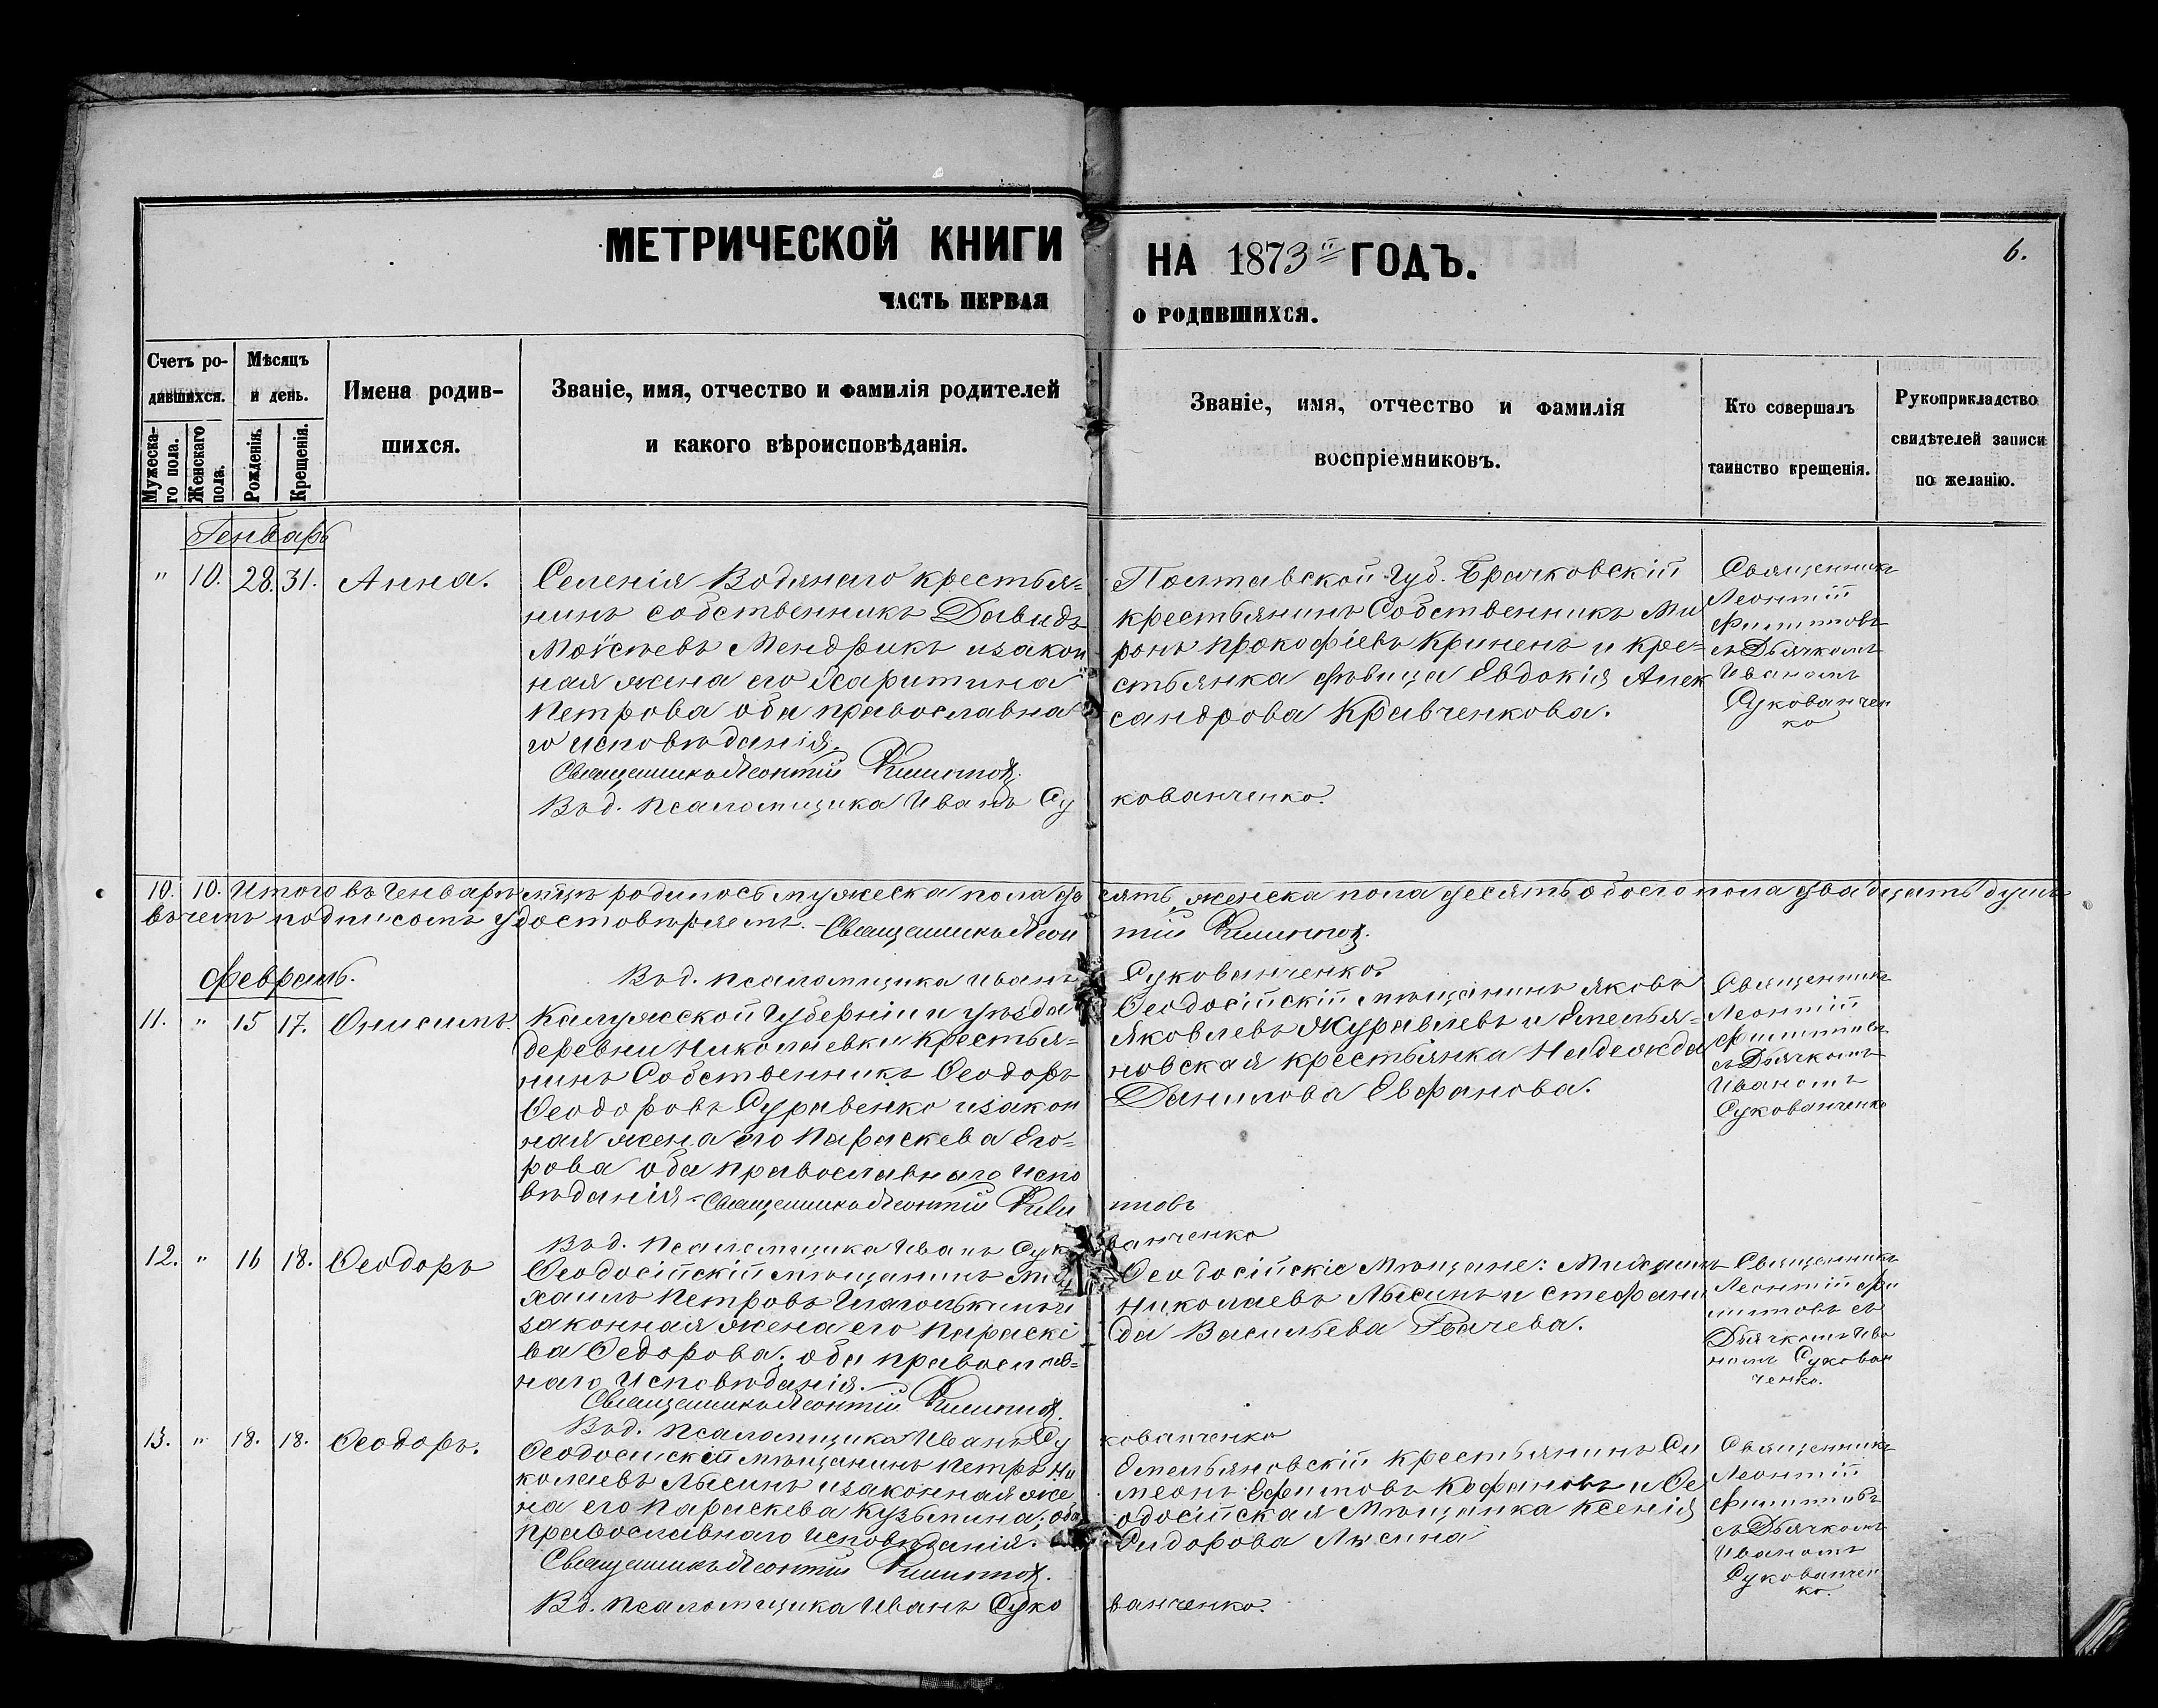 МЕТРИЧЕСКОЙ КНИГИ НА 1873й ГОДЪ.
6.
ЧАСТЬ ПЕРВАЯ О РОДИВШИХСЯ.
Счетъ ро-
дившихся.
Мужеска-
го пола.
Женскаго
пола.
Мѣсяцъ
и день.
Рожденія.
Крещенія.
Имена родив-
шихся.
Званіе, имя, отчество и фамилія родителей
и какого вѣроисповѣданія.
Званіе, имя, отчество и фамилія
воспріемниковъ.
Кто совершалъ
таинство крещенія.
Рукоприкладство
свидѣтелей записи
по желанію.
Генварь
" 10. 28. 31. Анна.
Селенія Водянаго крестья=
нинъ собственникъ Давидъ
Моѵсеевъ Мендрикъ и закон
ная жена его Харитина
Петрова оба православна
го исповѣданія.
Священникъ Леонтій Филиппов.
Въ д. псаломщика Иванъ Су
кованченко.
Полтавской Губ.
крестьянинъ Собственникъ Ми
ронъ Прокофіевъ Криненъ и кре=
стьянка дѣвица Евдокія Алек
сандрова Кравченкова.
Священникъ
Леонтій
Филипповъ
съ Дьячкомъ
Иваномъ
Сукованчен
ко
10. 10. Итого въ Генварѣ мцѣ родилось мужеска пола де сять, женска пола десять обоего пола двадцать душъ
въ чемъ подписомъ удостовѣряемъ. - Священникъ Леон тій Филиппов.
Въ д. псаломщика Иванъ Сукованченко.
Февраль.
11. " 15 17. Онисимъ.
Калужской Губерніи и уѣзда
деревни Николаевки Крестья=
нинъ Собственникъ Ѳеодоръ
Ѳеодоровъ Суравенко и закон
ная жена его Параскева Его=
рова оба православнаго испо
вѣданія - Священникъ Леонтій Фили пповъ
Въ д. Псаломщика Иванъ Сук ванченко
Ѳеодосійскій мѣщанинъ Яковъ
Яковлевъ Журавлевъ и Емелья=
новская крестьянка Надежда
Данилова Евфанова.
Священникъ
Леонтій
Филипповъ
съ Дьячкомъ
Иваномъ
Сукованченко
12. " 16 18. Ѳеодоръ
Ѳеодосійскій мѣщанинъ Ми
хаилъ Петровъ Игаголькинъ и
законная жена его Параскі
ва Ѳедорова; оба православ=
наго исповѣданія.
Священникъ Леонтій Филиппов.
Въ д. псаломщика Иванъ Су кованченко
Ѳеодосійскіе Мѣщане: Михаилъ
Николаевъ Лысинъ и Стефани
да Васильева
Священникъ
Леонтій Фи
липповъ съ
Дьячкомъ Ива
номъ Сукован
ченко.
13. " 18. 18. Ѳеодоръ.
Ѳеодосійскій мѣщанинъ Петръ Ни
колаевъ Лысинъ и законная же
на его Параскева Кузьмина; оба
православнаго исповѣданія.
Священникъ Леонтій Филиппов.
Въ д. псаломщика Иванъ Суко ванченко.
Емельяновскій крестьянинъ Си
меонъ Ефимовъ Кофановъ и Ѳе
одосійская Мѣщанка Ксенія
Сидорова Лысина
Священникъ
Леонтій
Филипповъ
съ Дьячкомъ
Иваномъ
Сукованчен
ко.